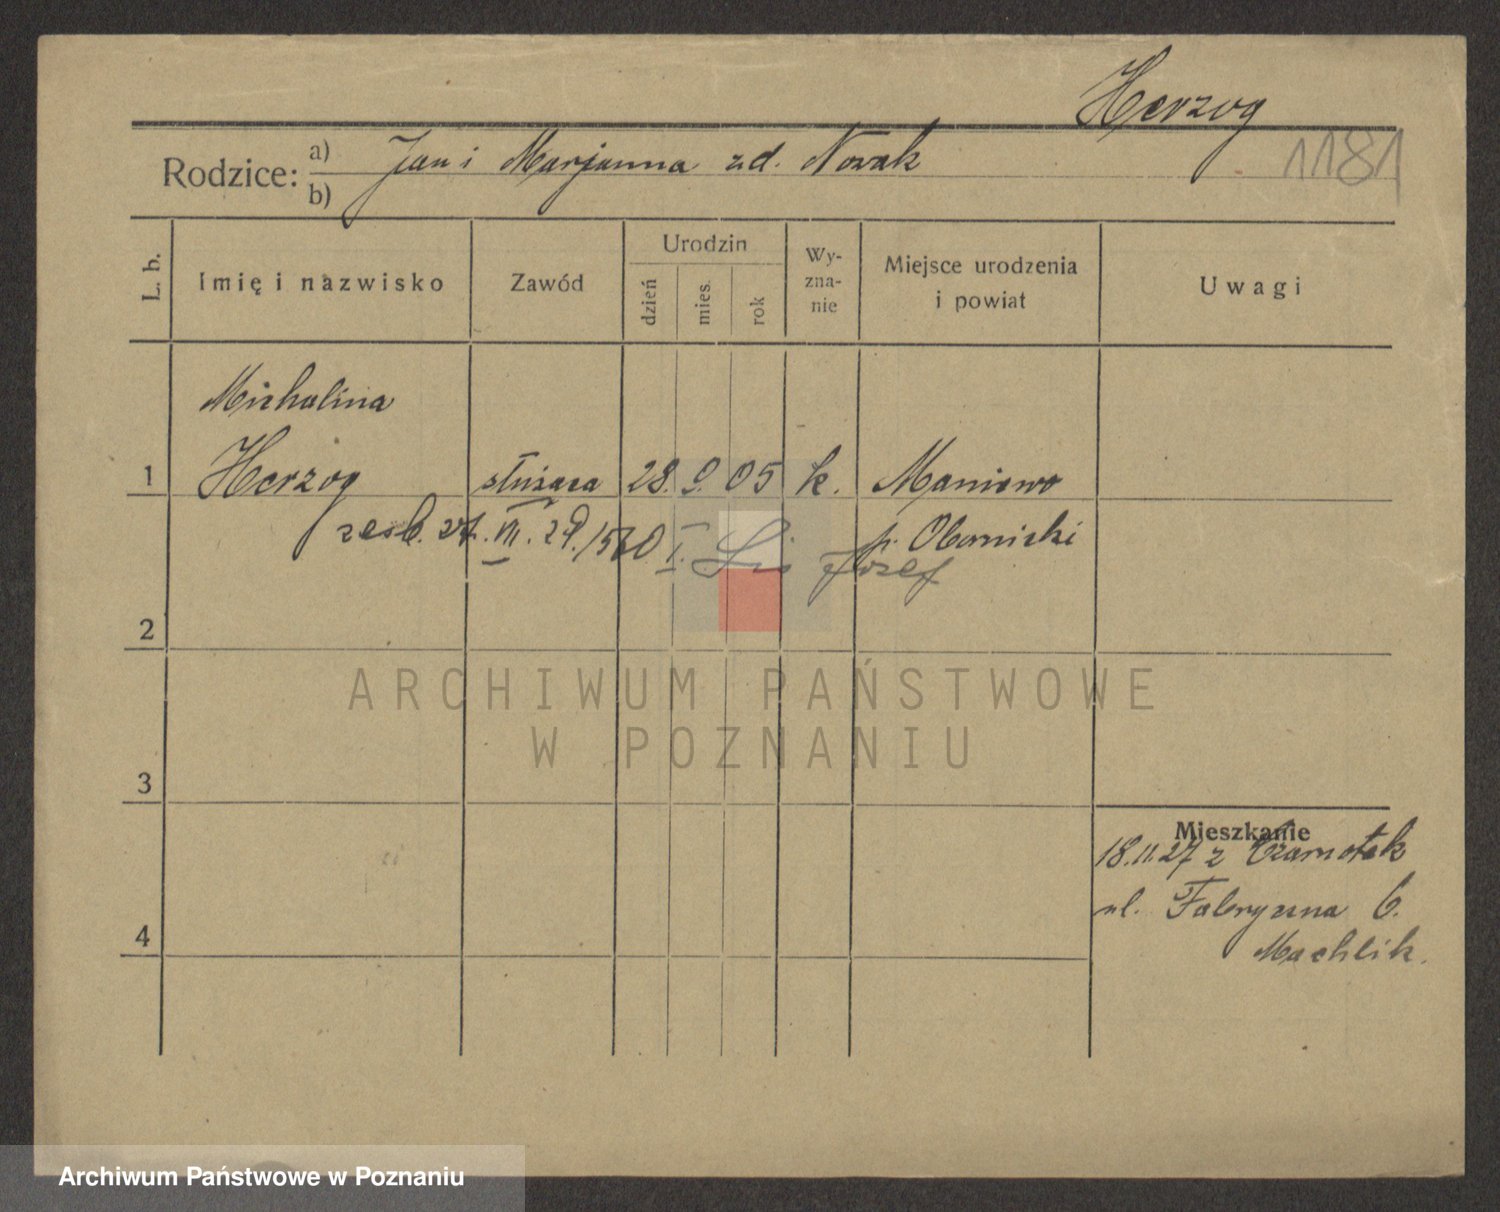 Herzog
1181
Rodzice: a) Jan i Marjanna zd. Nowak
b)
L. b.
Imię i nazwisko
Zawód
Urodzin
dzień
mies.
rok
Wy-
zna-
nie
Miejsce urodzenia
i powiat
Uwagi
Michalina
1 Herzog służąca 28. 9. 05 k. Maniewo
p. Obornicki
27. VII. 29. I. Lis Józef
2
ARCHIWUM PAŃSTWOWE
W POZNANIU
3
Mieszkanie
18.11.27 z
ul. Fabryczna 6.
4
Machlik.
Archiwum Państwowe w Poznaniu